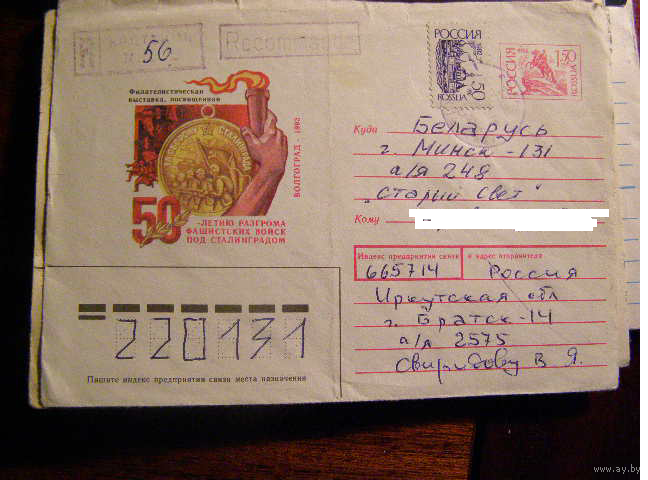 № 56
Recommandé
РОССИЯ
50
ROSSIJA
1992
РОССИЯ
1.50
ROSSIJA
Филателистическая
выставка, посвященная
ЗА ОБОРОНУ СТАЛИНГРАДА
ВОЛГОГРАД · 1992
50
-ЛЕТИЮ РАЗГРОМА
ФАШИСТСКИХ ВОЙСК
ПОД СТАЛИНГРАДОМ
Куда Беларусь
г. Минск -131
а/я 248
"Старый Свет"
Кому
Индекс предприятия связи и адрес отправителя
665714 Россия
Иркутская обл
г. Братск-14
а/я 2575
Свиридову В. Я.
220131
Пишите индекс предприятия связи места назначения
www.ay.by